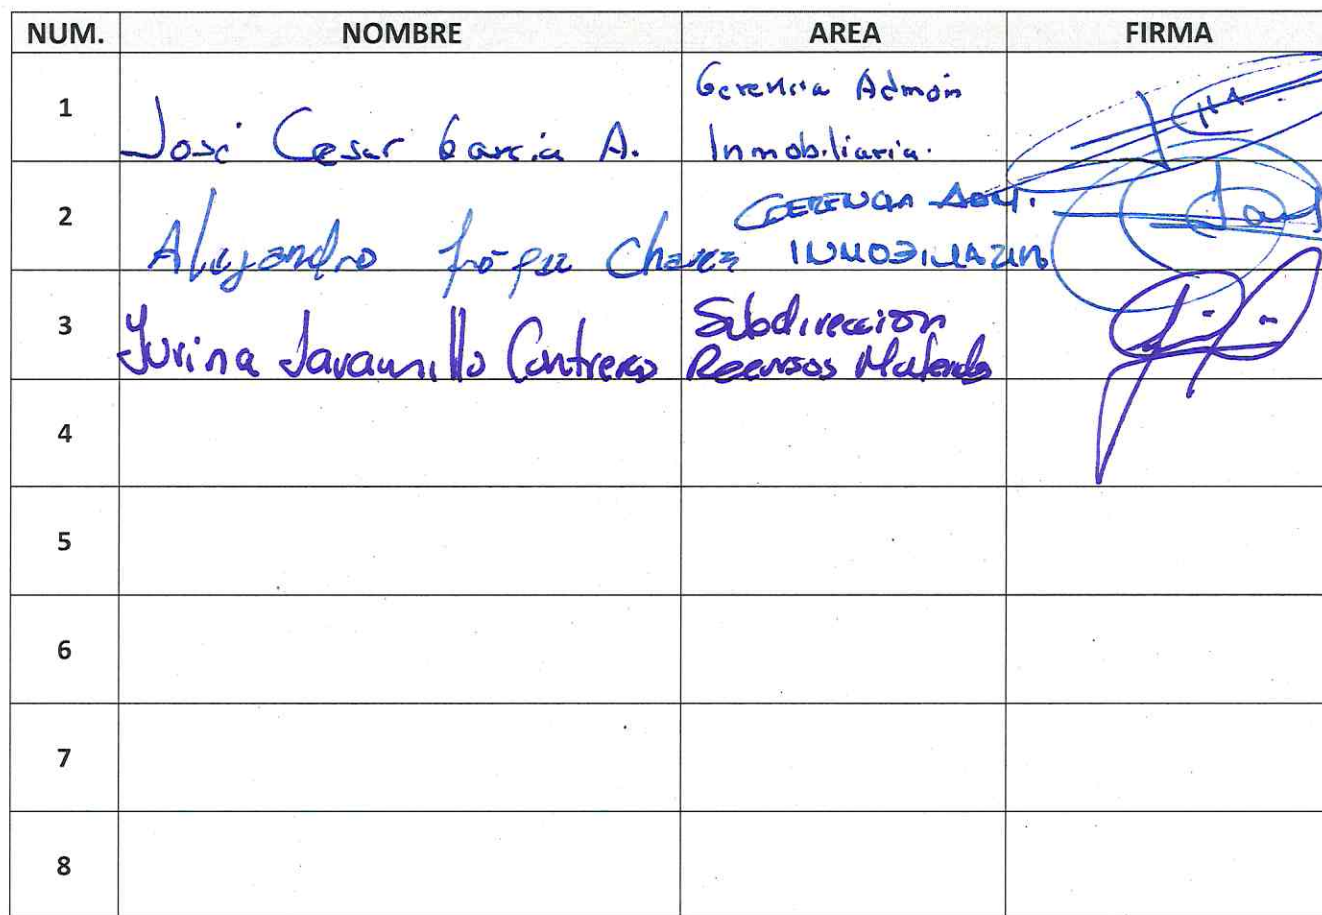 NUM. NOMBRE AREA FIRMA
1 José Cesar Garcia A. Gerencia Admón
Inmobiliaria.
2 Alejandro López Chavez GERENCIA ADM.
INMOBILIARIA
3 Yurina Jaramillo Contreras Subdireccion
Recursos Materiales
4
5
6
7
8